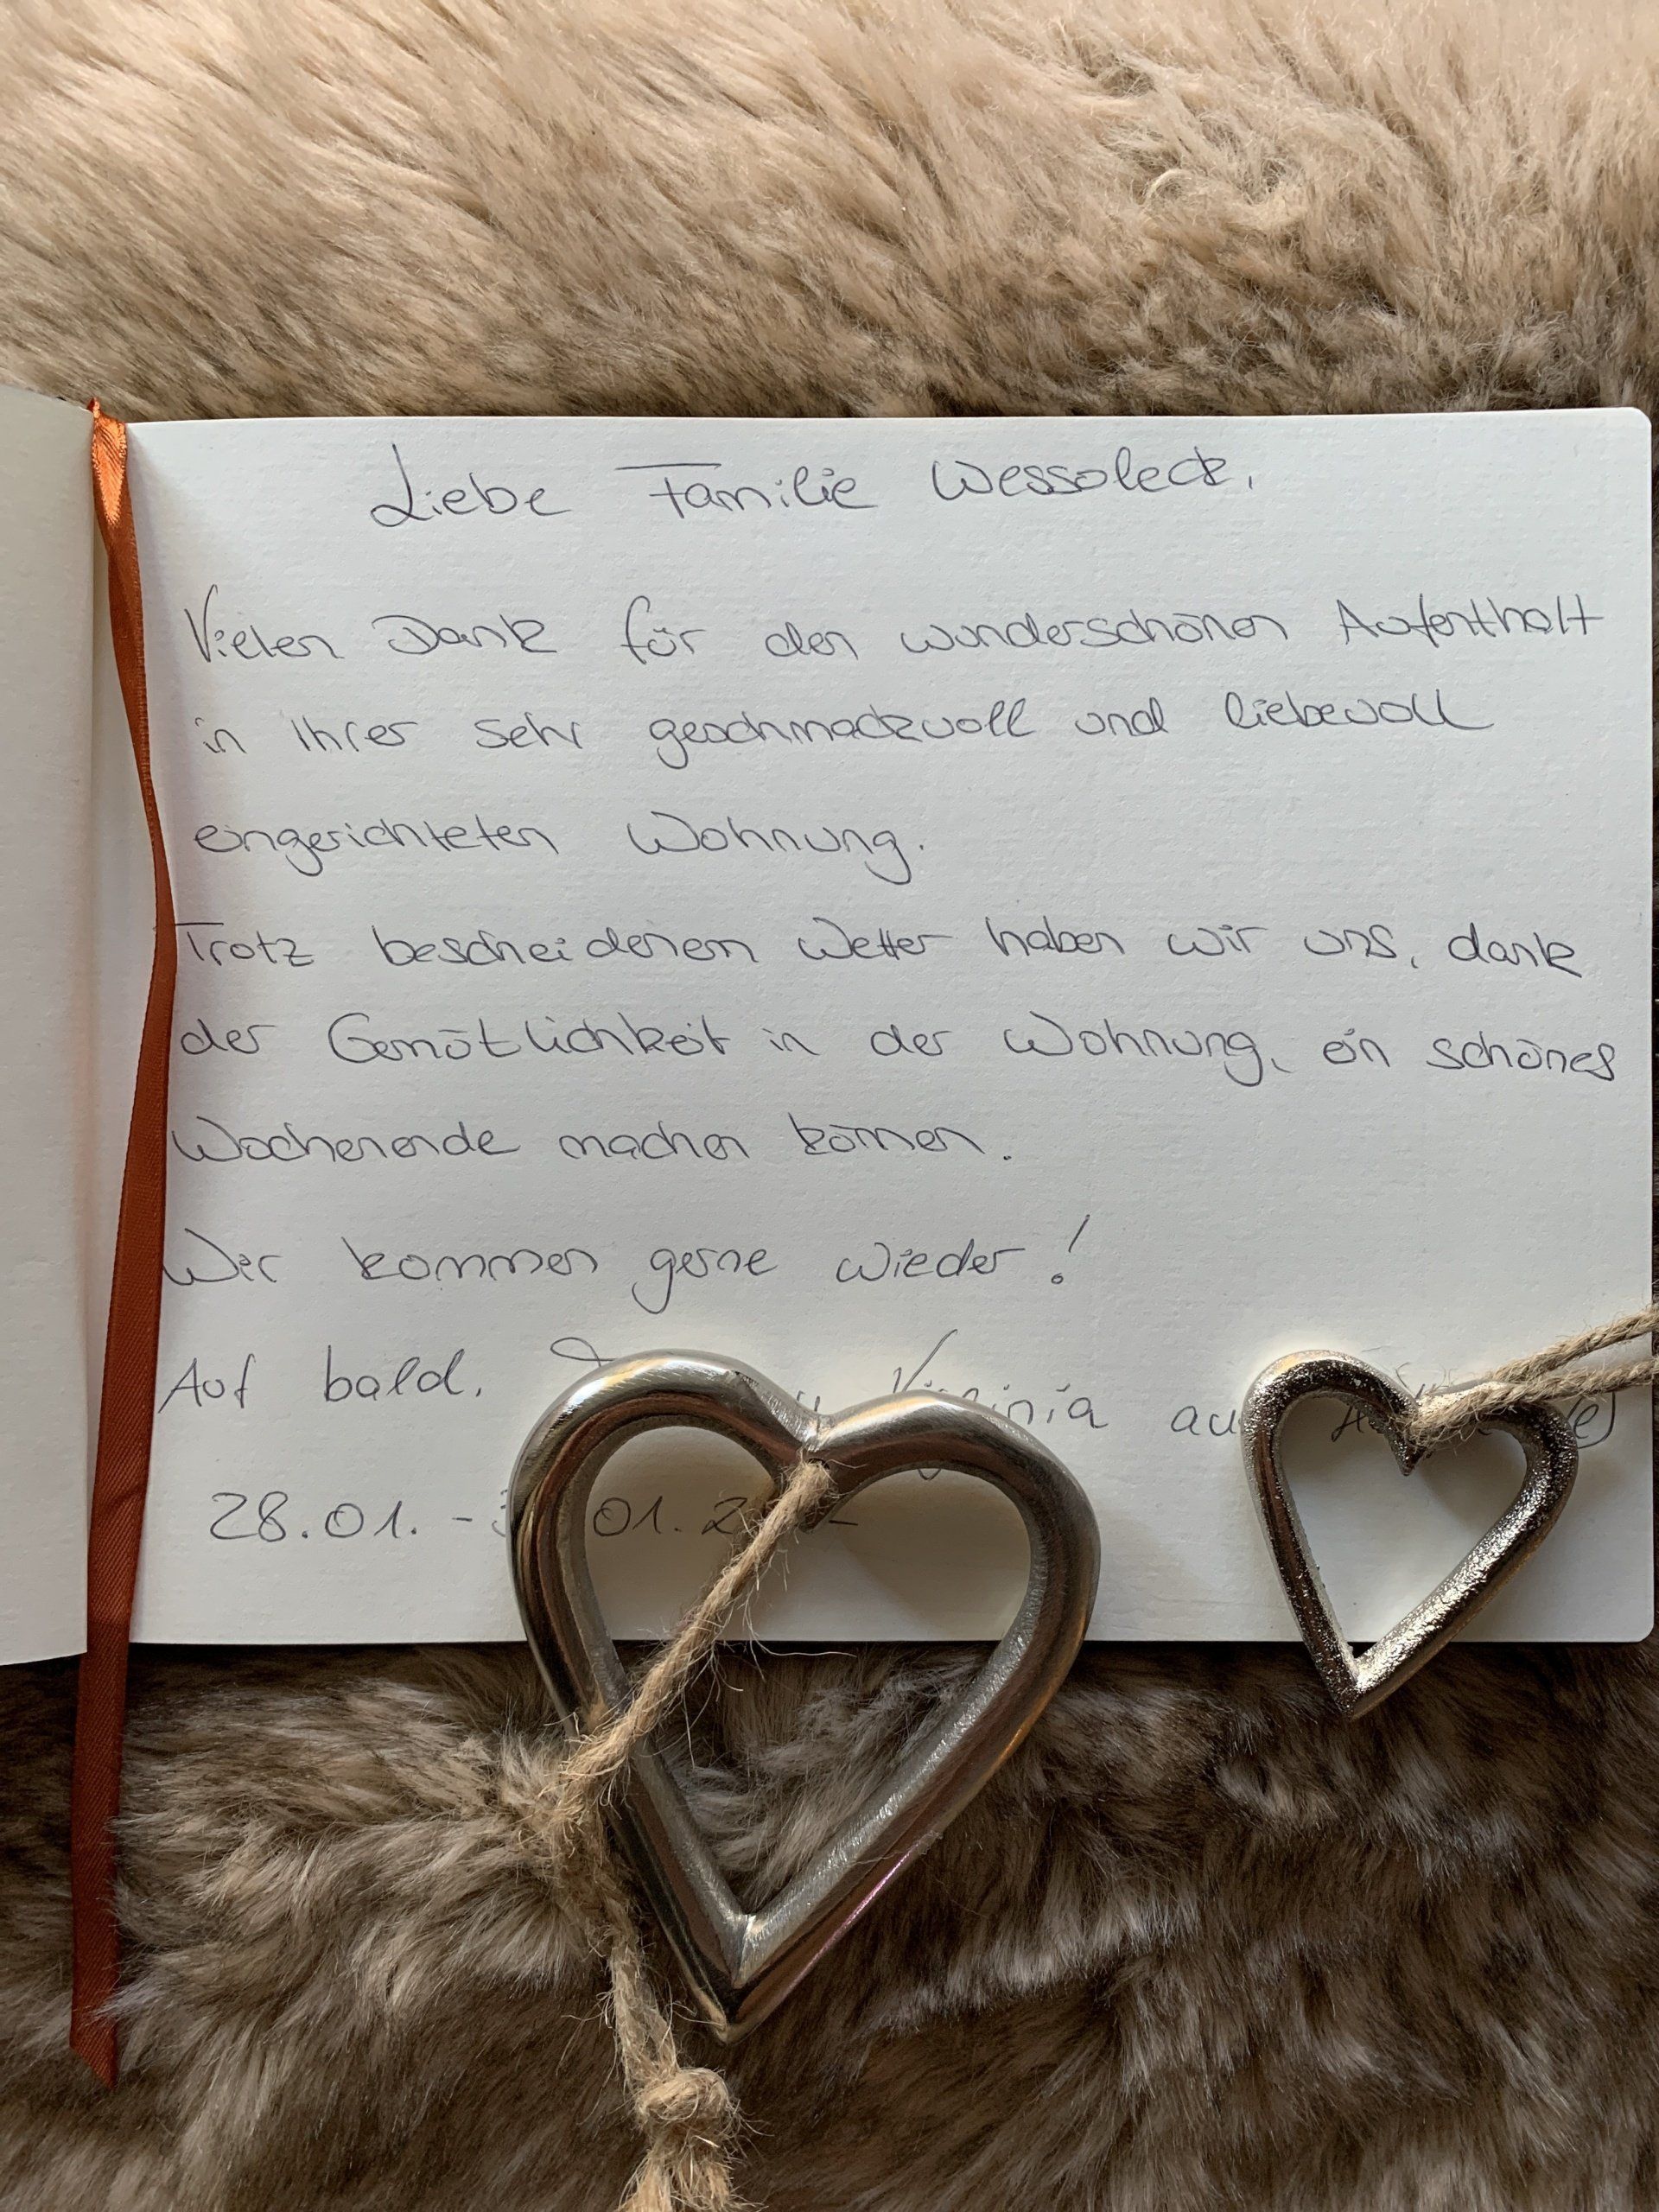 Liebe Familie Wessoleck,
Vielen Dank für den wunderschönen Aufenthalt
in Ihrer sehr geschmackvoll und liebevoll
eingerichteten Wohnung.
Trotz bescheidenem Wetter haben wir uns, dank
der Gemütlichkeit in der Wohnung, ein schönes
Wochenende machen können.
Wir kommen gerne wieder!
Auf bald, Virginia aus
28.01. - 01.